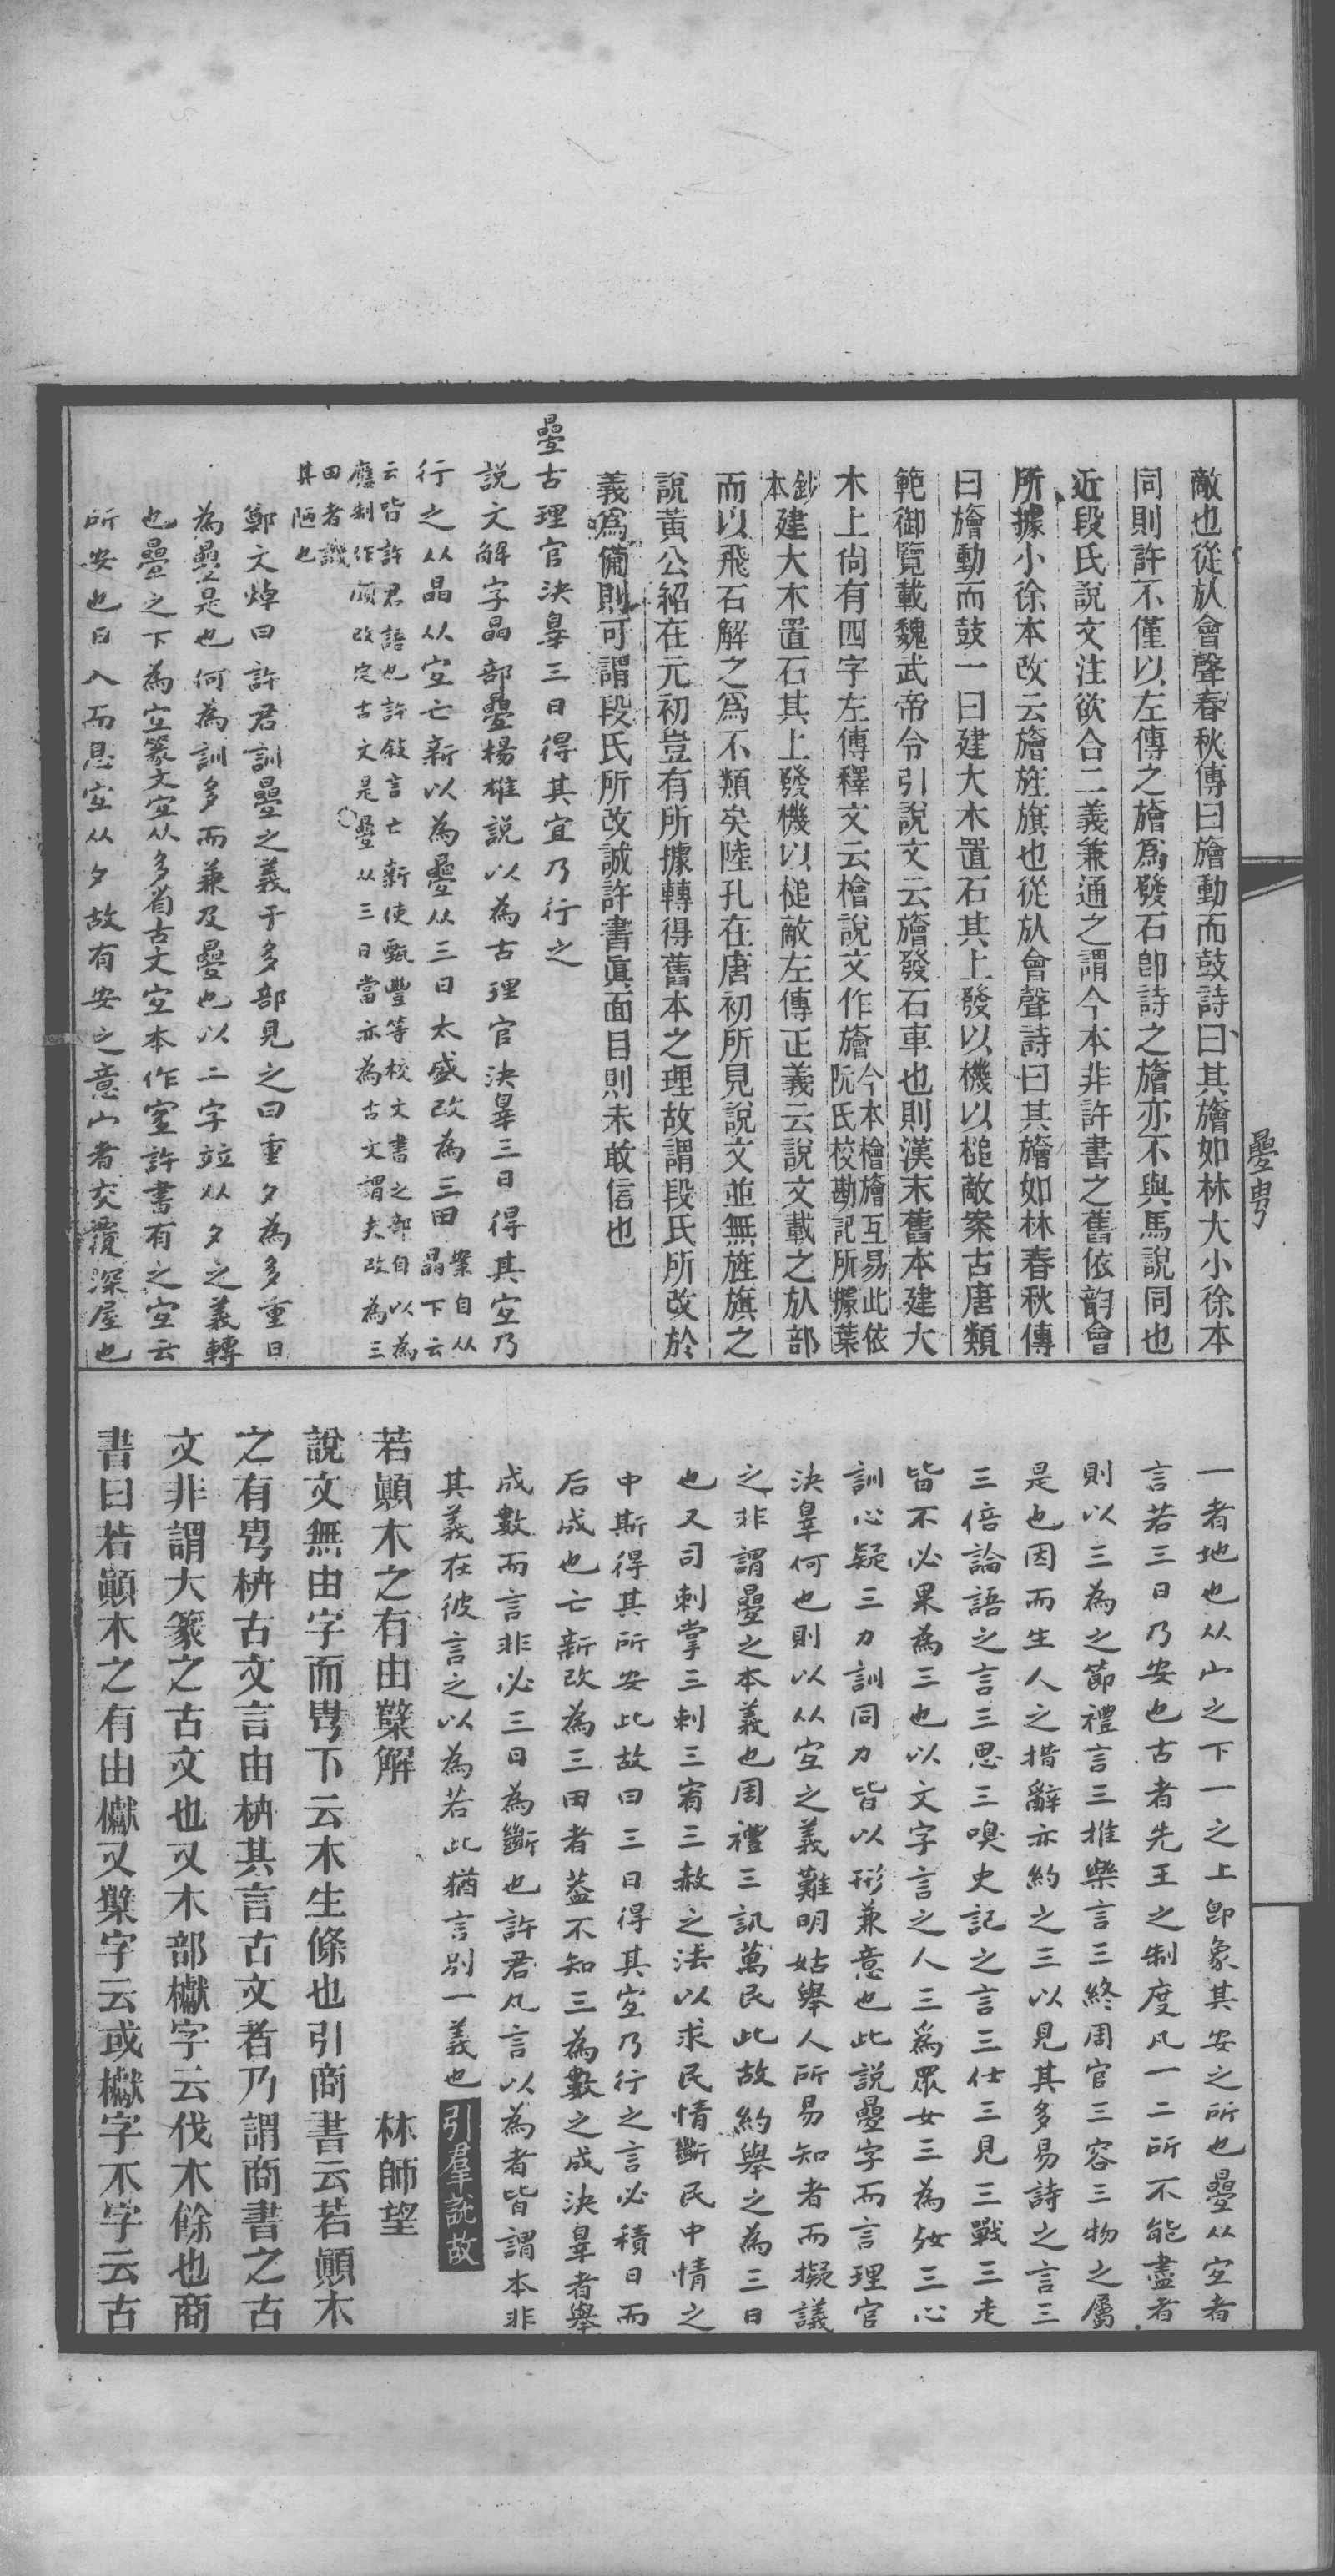 敵也從㫃會聲春秋傳曰旝動而鼓詩曰其旝如林大小徐本
同則許不僅以左傳之旝爲發石卽詩之旝亦不與馬說同也
近段氏說文注欲合二義兼通之謂今本非許書之舊依韵會
所據小徐本改云旝旌旗也從㫃會聲詩曰其旝如林春秋傳
曰旝動而鼓一曰建大木置石其上發以機以槌敵案古唐類
範御覽載魏武帝令引說文云旝發石車也則漢末舊本建大
木上尙有四字左傳釋文云檜說文作旝今本檜旝互易此依
阮氏校勘記所據葉
鈔本建大木置石其上發機以槌敵左傳正義云說文載之㫃部
而以飛石解之爲不類矣陸孔在唐初所見說文並無旌旗之
說黃公紹在元初豈有所據轉得舊本之理故謂段氏所改於
義爲備則可謂段氏所改誠許書眞面目則未敢信也
疊古理官決辠三日得其宜乃行之
說文解字晶部疊楊雄說以為古理官決辠三日得其宐乃
行之从晶从宐亡新以為疊从三日太盛改為三田案自从
晶下云
云皆許君語也許敘言亡新使甄豐等校文書之部自以為
應制作頗改定古文是疊从三日當亦為古文謂夫改為三
田者譏
其陋也
鄭文焯曰許君訓疊之義于多部見之曰重夕為多重日
為疊是也何為訓多而兼及疊也以二字竝从夕之義轉
也疊之下為宐篆文宐从多省古文宐本作宜許書有之宐云
所安也日入而息宐从夕故有安之意宀者交覆深屋也
疊甹
一者地也从宀之下一之上卽象其安之所也疊从宐者
言若三日乃安也古者先王之制度凡一二所不能盡者
則以三為之節禮言三推樂言三終周官三容三物之屬
是也因而生人之措辭亦約之三以見其多易詩之言三
三倍論語之言三思三嗅史記之言三仕三見三戰三走
皆不必果為三也以文字言之人三爲眾女三為姦三心
訓心疑三力訓同力皆以形兼意也此說疊字而言理官
決辠何也則以从宐之義難明姑舉人所易知者而擬議
之非謂疊之本義也周禮三訊萬民此故約舉之為三日
也又司刺掌三刺三宥三赦之法以求民情斷民中情之
中斯得其所安此故曰三日得其宐乃行之言必積日而
后成也亡新改為三田者葢不知三為數之成決辠者舉
成數而言非必三日為斷也許君凡言以為者皆謂本非
其義在彼言之以為若此猶言別一義也 引羣說故
若顚木之有由櫱解 林師望
說文無由字而甹下云木生條也引商書云若顚木
之有甹枿古文言由枿其言古文者乃謂商書之古
文非謂大篆之古文也又木部㰖字云伐木餘也商
書曰若顚木之有由㰖又櫱字云或㰖字不字云古